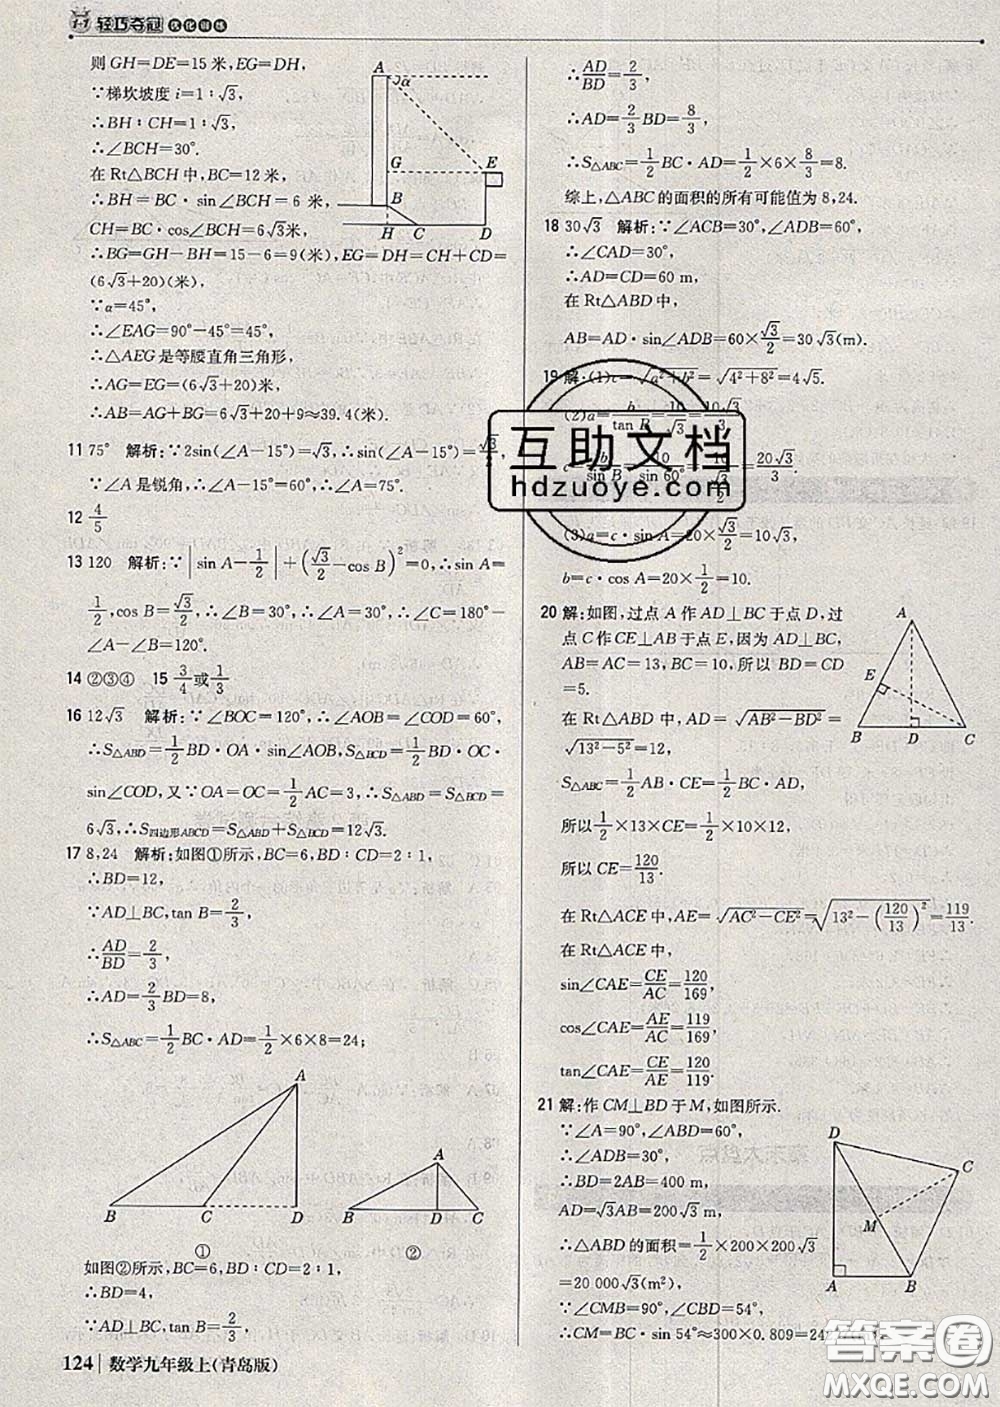 1+1 轻巧夺冠 优化训练
则GH=DE=15米,EG=DH,
∵梯坎坡度i=1∶√3,
∴BH∶CH=1∶√3,
∴∠BCH=30°.
在Rt△BCH中,BC=12米,
∴BH=BC·sin∠BCH=6米,
CH=BC·cos∠BCH=6√3米,
∴BG=GH-BH=15-6=9(米),EG=DH=CH+CD=
(6√3+20)(米),
∵α=45°,
∴∠EAG=90°-45°=45°,
∴△AEG是等腰直角三角形,
∴AG=EG=(6√3+20)米,
∴AB=AG+BG=6√3+20+9≈39.4(米).
A α G E B H C D
11 75° 解析:∵2sin(∠A-15°)=√3,∴sin(∠A-15°)=√3/2,
∵∠A是锐角,∴∠A-15°=60°,∴∠A=75°.
12 4/5
13 120 解析:∵|sin A-1/2|+(√3/2-cos B)²=0,∴sin A=
1/2,cos B=√3/2,∴∠B=30°,∴∠A=30°,∴∠C=180°-
∠A-∠B=120°.
14 ②③④ 15 3/4或1/3
16 12√3 解析:∵∠BOC=120°,∴∠AOB=∠COD=60°,
∴S△ABD=1/2BD·OA·sin∠AOB,S△BCD=1/2BD·OC·
sin∠COD,又∵OA=OC=1/2AC=3,∴S△ABD=S△BCD=
6√3,∴S四边形ABCD=S△ABD+S△BCD=12√3.
17 8,24 解析:如图①所示,BC=6,BD∶CD=2∶1,
∴BD=12,
∵AD⊥BC,tan B=2/3,
∴AD/BD=2/3,
∴AD=2/3BD=8,
∴S△ABC=1/2BC·AD=1/2×6×8=24;
A B C D ①
A B D C ②
如图②所示,BC=6,BD∶CD=2∶1,
∴BD=4,
∵AD⊥BC,tan B=2/3,
∴AD/BD=2/3,
∴AD=2/3BD=8/3,
∴S△ABC=1/2BC·AD=1/2×6×8/3=8.
综上,△ABC的面积的所有可能值为8,24.
18 30√3 解析:∵∠ACB=30°,∠ADB=60°,
∴∠CAD=30°,
∴AD=CD=60 m,
在Rt△ABD中,
AB=AD·sin∠ADB=60×√3/2=30√3(m).
19 解:(1)c=√(a²+b²)=√(4²+8²)=4√5.
(2)a=b/tan B=10/√3=10√3/3,
c=b/sin B=10/sin 60°=10/(√3/2)=20√3/3.
(3)a=c·sin A=20×√3/2=10√3,
b=c·cos A=20×1/2=10.
20 解:如图,过点A作AD⊥BC于点D,过
点C作CE⊥AB于点E,因为AD⊥BC,
AB=AC=13,BC=10,所以BD=CD
=5.
在Rt△ABD中,AD=√(AB²-BD²)=
√(13²-5²)=12,
S△ABC=1/2AB·CE=1/2BC·AD,
所以1/2×13×CE=1/2×10×12,
所以CE=120/13.
在Rt△ACE中,AE=√(AC²-CE²)=√(13²-(120/13)²)=119/13.
在Rt△ACE中,
sin∠CAE=CE/AC=120/169,
cos∠CAE=AE/AC=119/169,
tan∠CAE=CE/AE=120/119.
A E B D C
21 解:作CM⊥BD于M,如图所示.
∵∠A=90°,∠ABD=60°,
∴∠ADB=30°,
∴BD=2AB=400 m,
AD=√3AB=200√3(m),
∴△ABD的面积=1/2×200×200√3
=20 000√3(m²),
∵∠CMB=90°,∠CBD=54°,
∴CM=BC·sin 54°≈300×0.809=24
D C M A B
互助文档
hdzuoye.com
答案圈
MXQE.COM
124 数学九年级上(青岛版)